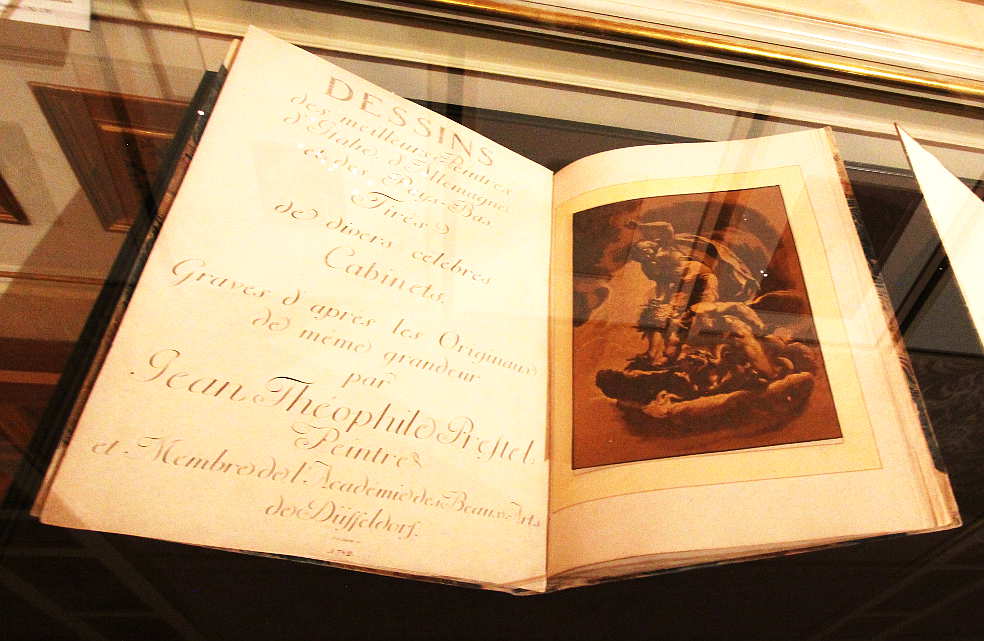 DESSINS
des meilleurs Peintres
d'Italie, d'Allemagne
et des Pays-Bas.
Tirés
de divers celebres
Cabinets.
Graves d'apres les Originaux
de même grandeur
par
Jean Théophile Prestel.
Peintre
et Membre de l'Academie des Beaux Arts
de Düsseldorf.